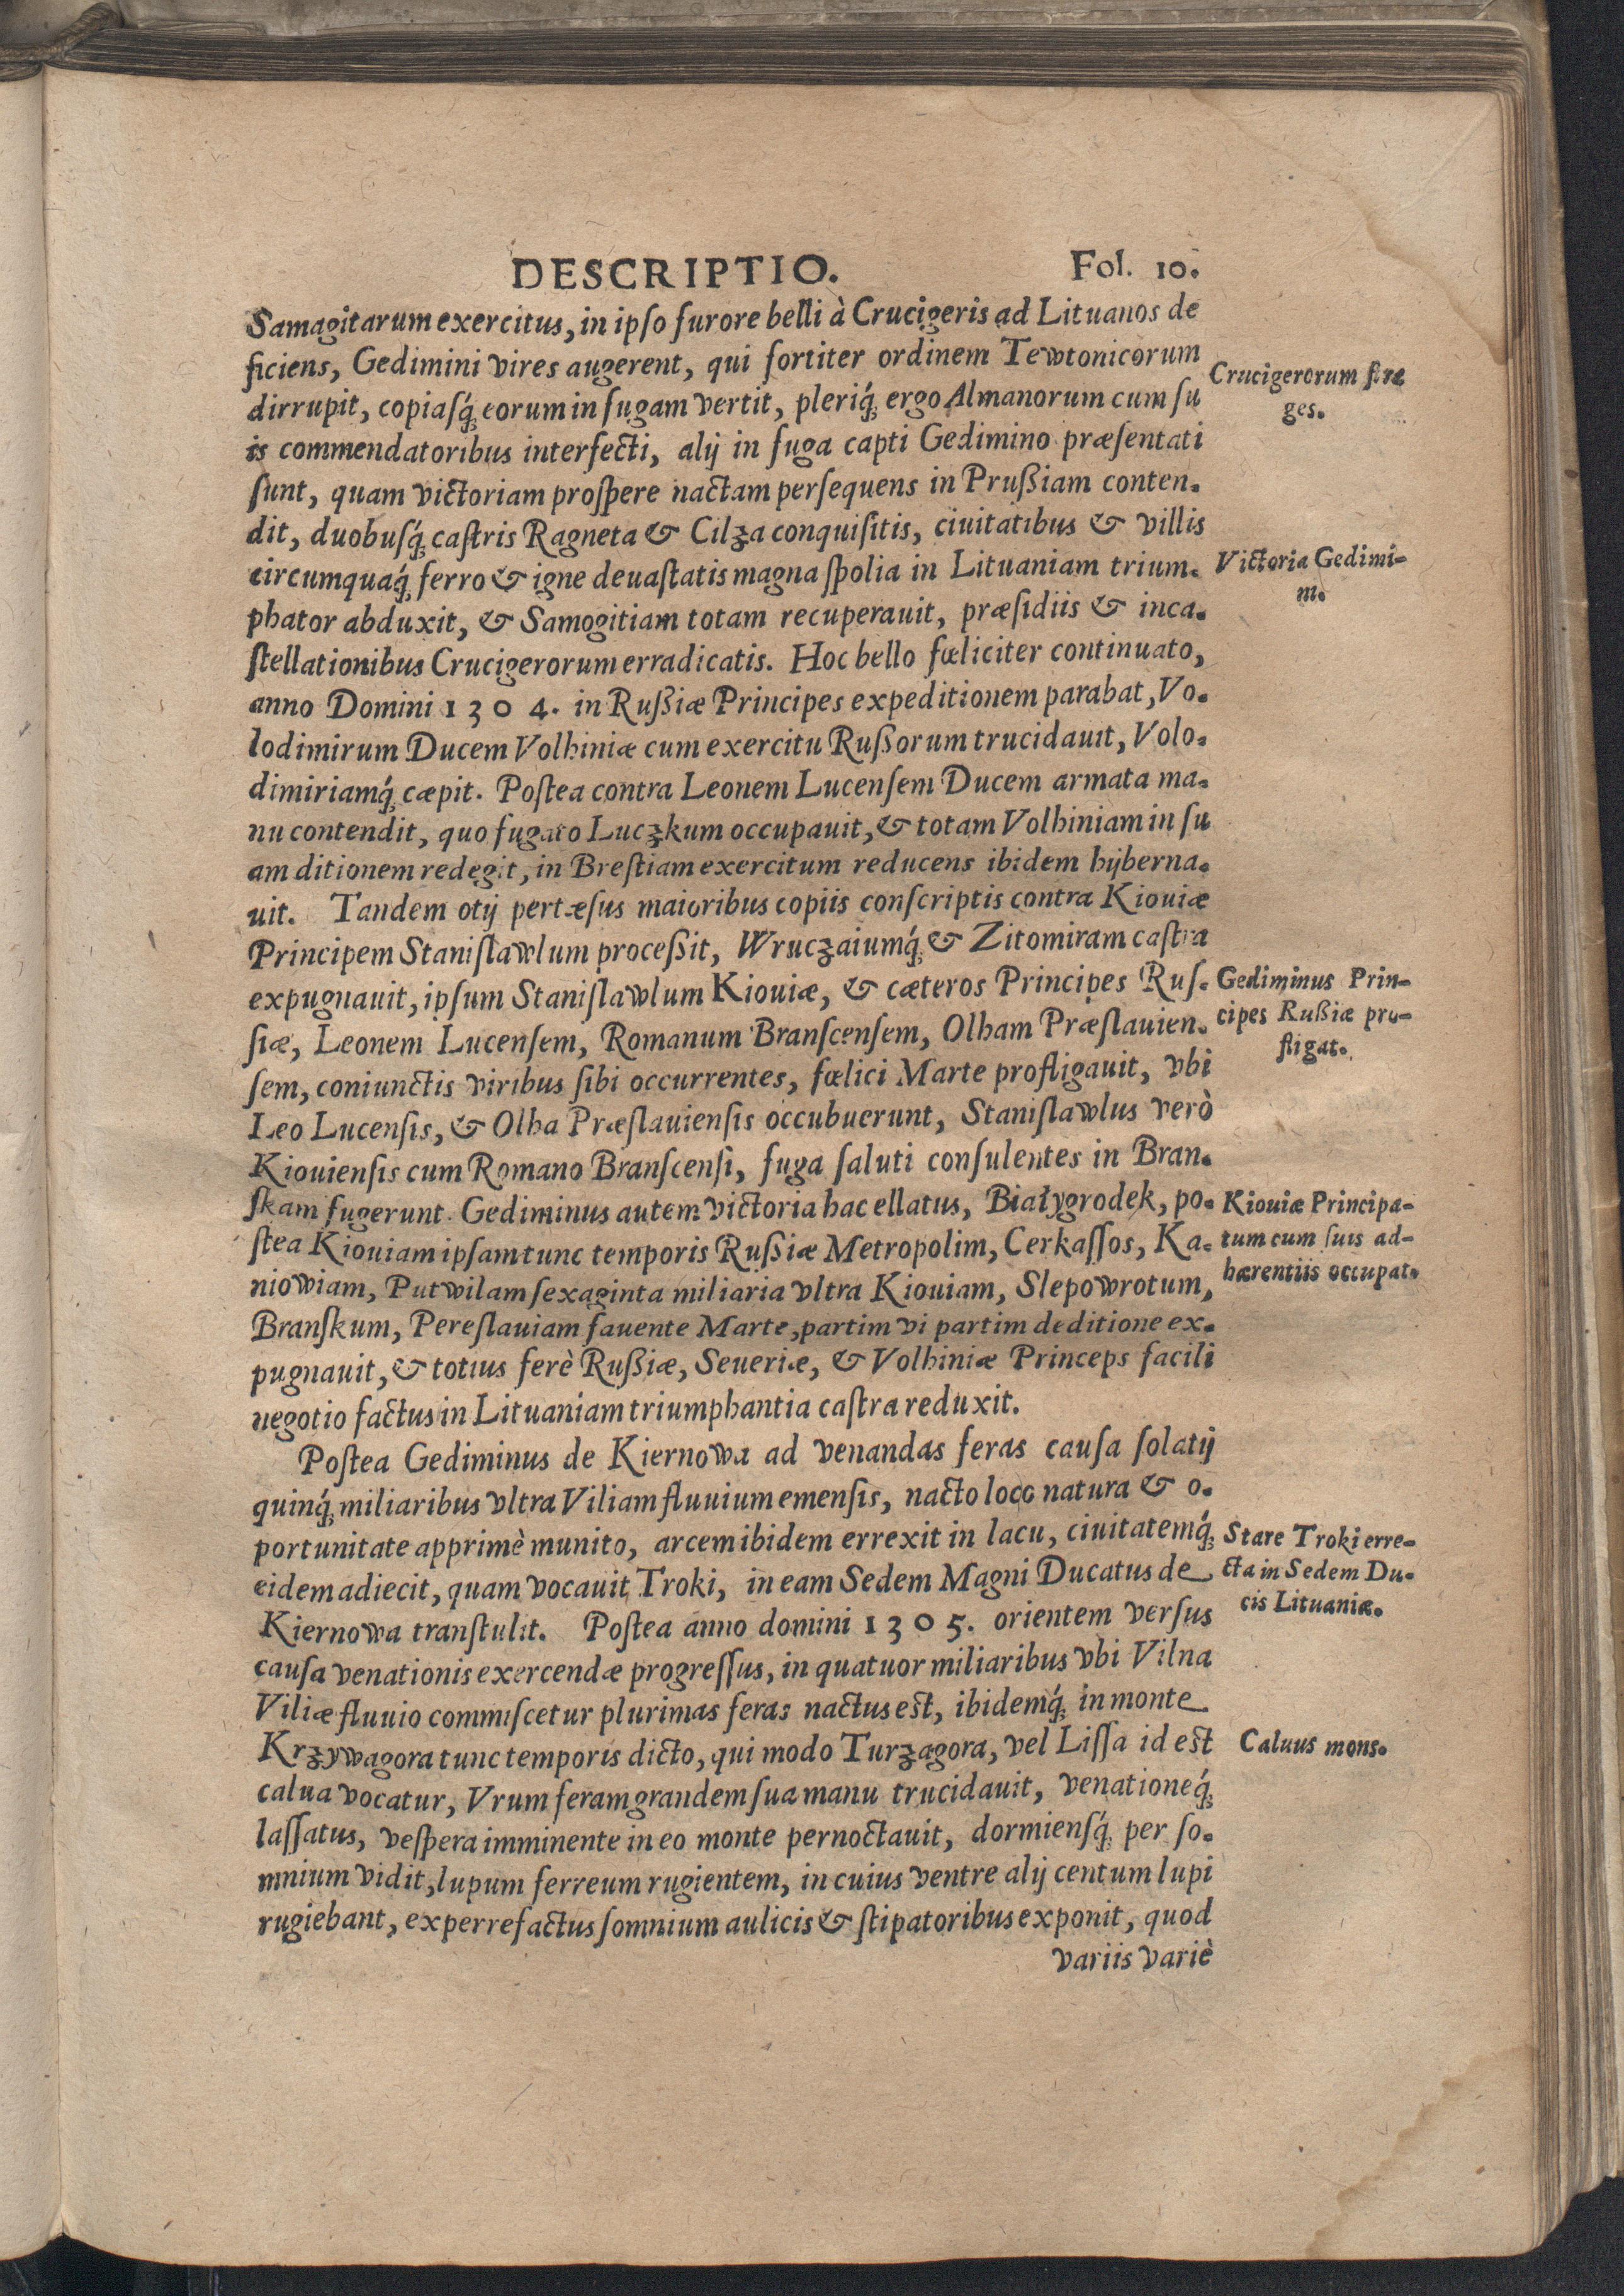 DESCRIPTIO. Fol. 10.
Samagitarum exercitus, in ipſo furore belli à Crucigeris ad Lituanos de
ficiens, Gedimini vires augerent, qui fortiter ordinem Tewtonicorum
dirrupit, copiaſq́; eorum in fugam vertit, pleriq́; ergo Almanorum cum ſu
is commendatoribus interfecti, alij in fuga capti Gedimino præſentati
ſunt, quam victoriam proſpere nactam perſequens in Prußiam conten-
dit, duobuſq́; caſtris Ragneta & Cilza conquiſitis, ciuitatibus & villis
circumquaq́; ferro & igne deuaſtatis magna ſpolia in Lituaniam trium-
phator abduxit, & Samogitiam totam recuperauit, præſidiis & inca-
ſtellationibus Crucigerorum erradicatis. Hoc bello fœliciter continuato,
anno Domini 1304. in Rußiæ Principes expeditionem parabat, Vo-
lodimirum Ducem Volhiniæ cum exercitu Rußorum trucidauit, Volo-
dimiriamq́; cæpit. Poſtea contra Leonem Lucenſem Ducem armata ma-
nu contendit, quo fugato Luczkum occupauit, & totam Volhiniam in ſu
am ditionem redegit, in Breſtiam exercitum reducens ibidem hijberna-
uit. Tandem otij pertæſus maioribus copiis conſcriptis contra Kiouiæ
Principem Staniſlawlum proceßit, Wruczaiumq́; & Zitomiram caſtra
expugnauit, ipſum Staniſlawlum Kiouiæ, & cæteros Principes Ruſ-
ſiæ, Leonem Lucenſem, Romanum Branſcenſem, Olham Præſlauien-
ſem, coniunctis viribus ſibi occurrentes, fœlici Marte profligauit, vbi
Leo Lucenſis, & Olha Præſlauienſis occubuerunt, Staniſlawlus verò
Kiouienſis cum Romano Branſcenſi, fuga ſaluti conſulentes in Bran-
ſkam fugerunt. Gediminus autem victoria hac ellatus, Białygrodek, po-
ſtea Kiouiam ipſam tunc temporis Rußiæ Metropolim, Cerkaſſos, Ka-
niowiam, Putwilam ſexaginta miliaria vltra Kiouiam, Slepowrotum,
Branſkum, Pereſlauiam fauente Marte, partim vi partim deditione ex-
pugnauit, & totius ferè Rußiæ, Seueriæ, & Volhiniæ Princeps facili
negotio factus in Lituaniam triumphantia caſtra reduxit.
Poſtea Gediminus de Kiernowa ad venandas feras cauſa ſolatij
quinq́; miliaribus vltra Viliam fluuium emenſis, nacto loco natura & o-
portunitate apprimè munito, arcem ibidem errexit in lacu, ciuitatemq́;
eidem adiecit, quam vocauit Troki, in eam Sedem Magni Ducatus de
Kiernowa tranſtulit. Poſtea anno domini 1305. orientem verſus
cauſa venationis exercendæ progreſſus, in quatuor miliaribus vbi Vilna
Viliæ fluuio commiſcetur plurimas feras nactus est, ibidemq́; in monte
Krzywagora tunc temporis dicto, qui modo Turzagora, vel Liſſa id est
calua vocatur, Vrum feram grandem ſua manu trucidauit, venationeq́;
laſſatus, veſpera imminente in eo monte pernoctauit, dormienſq́; per ſo-
mnium vidit, lupum ferreum rugientem, in cuius ventre alij centum lupi
rugiebant, experrefactus ſomnium aulicis & ſtipatoribus exponit, quod
variis variè
Crucigerorum ſtra
ges.
Victoria Gedimi-
ni.
Gediminus Prin-
cipes Rußiæ pro-
fligat.
Kiouiæ Principa-
tum cum ſuis ad-
hærentiis occupat.
Stare Troki erre-
cta in Sedem Du-
cis Lituaniæ.
Caluus mons.